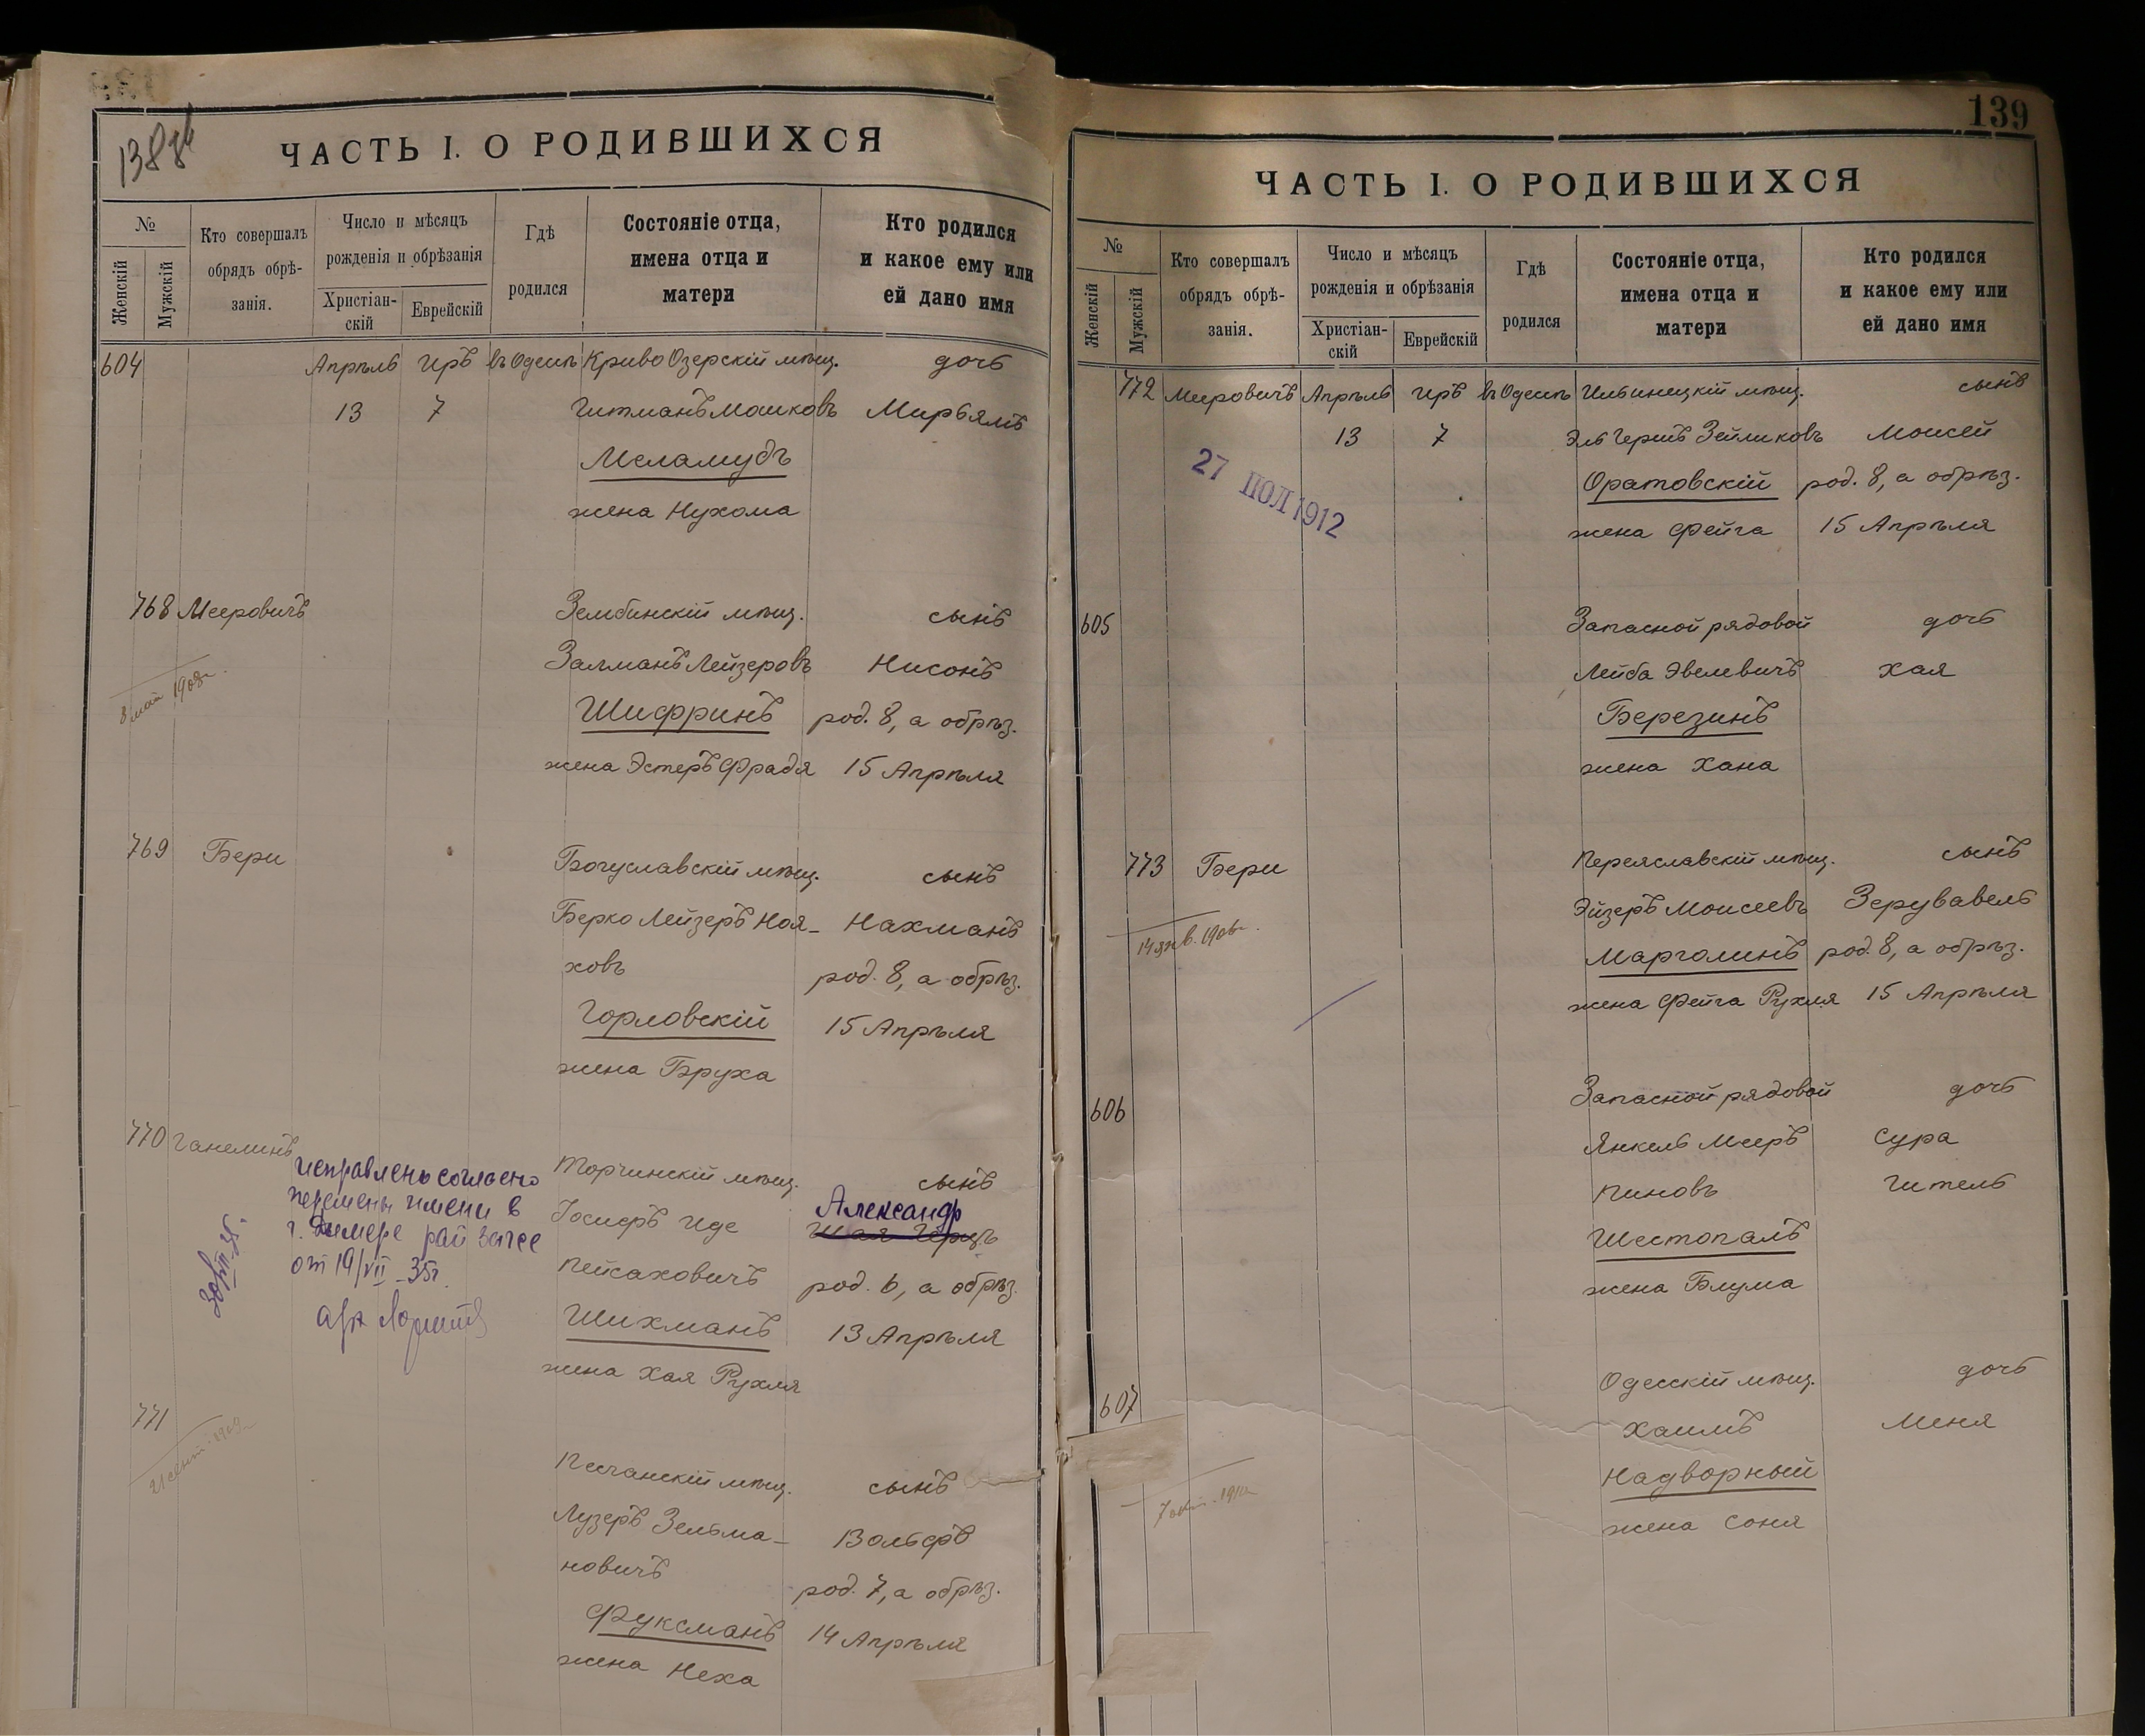 138 об
ЧАСТЬ I. О РОДИВШИХСЯ
№
Женскій
Мужскій
Кто совершалъ
обрядъ обрѣ-
занія.
Число и мѣсяцъ
рожденія и обрѣзанія
Христіан-
скій
Еврейскій
Гдѣ
родился
Состояніе отца,
имена отца и
матери
Кто родился
и какое ему или
ей дано имя
604 Апрѣль Иръ въ Одессѣ Криво Озерскій мѣщ. дочь
13 7 Гитманъ Мошковъ Мирьямъ
Меламудъ
жена Нухома
768 Мееровичъ Зембинскій мѣщ. сынъ
Залманъ Лейзеровъ Нисонъ
8 мая 1908г.
Шифринъ род. 8, а обрѣз.
жена Эстеръ Фрадя 15 Апрѣля
769 Бери Богуславскій мѣщ. сынъ
Берко Лейзеръ Ноя- Нахманъ
ховъ род. 8, а обрѣз.
Горловскій 15 Апрѣля
жена Бруха
770 Ганелинъ Торчинскій мѣщ. сынъ
исправлено согласно
перемены имени в
г. рай загсе
от 19/VII-35г.
Іосифъ Иде Александр
Шая Герцъ
Пейсаховичъ род. 6, а обрѣз.
Шихманъ 13 Апрѣля
жена Хая Рухля
771 Песчанскій мѣщ. сынъ
21 сент. 1909г.
Лузеръ Зельма- Вольфъ
новичъ род. 7, а обрѣз.
Фуксманъ 14 Апрѣля
жена Неха
139
ЧАСТЬ I. О РОДИВШИХСЯ
№
Женскій
Мужскій
Кто совершалъ
обрядъ обрѣ-
занія.
Число и мѣсяцъ
рожденія и обрѣзанія
Христіан-
скій
Еврейскій
Гдѣ
родился
Состояніе отца,
имена отца и
матери
Кто родился
и какое ему или
ей дано имя
772 Мееровичъ Апрѣль Иръ въ Одессѣ Ильинецкій мѣщ. сынъ
13 7 Эль Гершъ Зейликовъ Моисей
27 ІЮЛ 1912
Оратовскій род. 8, а обрѣз.
жена Фейга 15 Апрѣля
605 Запасной рядовой дочь
Лейба Эвелевичъ Хая
Березинъ
жена Хана
773 Бери Переяславскій мѣщ. сынъ
Эйзеръ Моисеевъ Зерувавель
14 янв. 1906г.
Марголинъ род. 8, а обрѣз.
жена Фейга Рухля 15 Апрѣля
606 Запасной рядовой дочь
Янкель Мееръ Сура
Пиновъ Гитель
Шестопалъ
жена Блума
607 Одесскій мѣщ. дочь
Хаимъ Меня
Надворный
7 окт. 1910г.
жена Соня